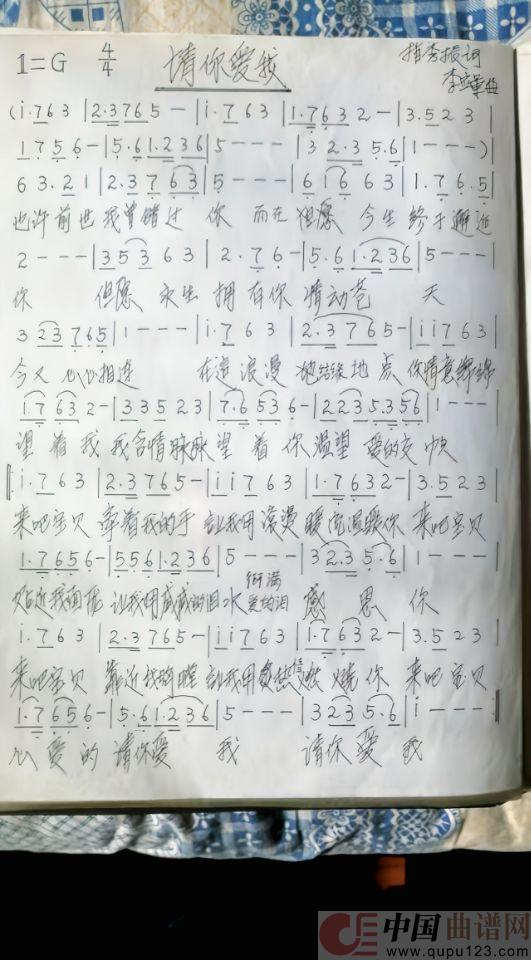 1=G 4/4 请你爱我 李安军曲
(i·763 | 2·3765 — | i·763 | 1·7632 — | 3·523 |
1756 — | 5·61·236 | 5 - - - | 32·35·6 | 1 - - - )
63·21 | 2·3763 | 5 - - - | 61663 | 1·76·5 |
也许前世我曾错过 你 而在 但愿 今生 终于邂逅
2 - - - | 35363 | 2·76 - | 5·61·236 | 5 - - - |
你 但愿 永生 拥有你 情动苍 天
323765 | 1 - - - | i·763 | 2·3765 - | ii763 |
今又 心心相连 在这 浪漫 地点 你情意绵绵
17632 - | 33523 | 7·6536 - | 2235·356 | 1 - - - |
望着我 我含情脉脉望 着你 渴望 爱的
‖: i·763 | 2·3765 - | ii763 | 1·7632 - | 3·523 |
来吧宝贝 牵着我的手 让我用浪漫 温暖你 来吧宝贝
1·7656 - | 5561·236 | 5 - - - | 32·35·6 | 1 - - - |
让我用 的泪水 爱的泪 感恩你
i·763 | 2·3765 - | ii763 | 1·7632 - | 3·523 |
来吧宝贝 靠近我的 让我用 燃烧你 来吧宝贝
1·7656 - | 5·61·236 | 5 - - - | 3235·6 | i - - - :‖
心爱的 请你爱 我 请你爱 我
中国曲谱网
www.qupu123.com